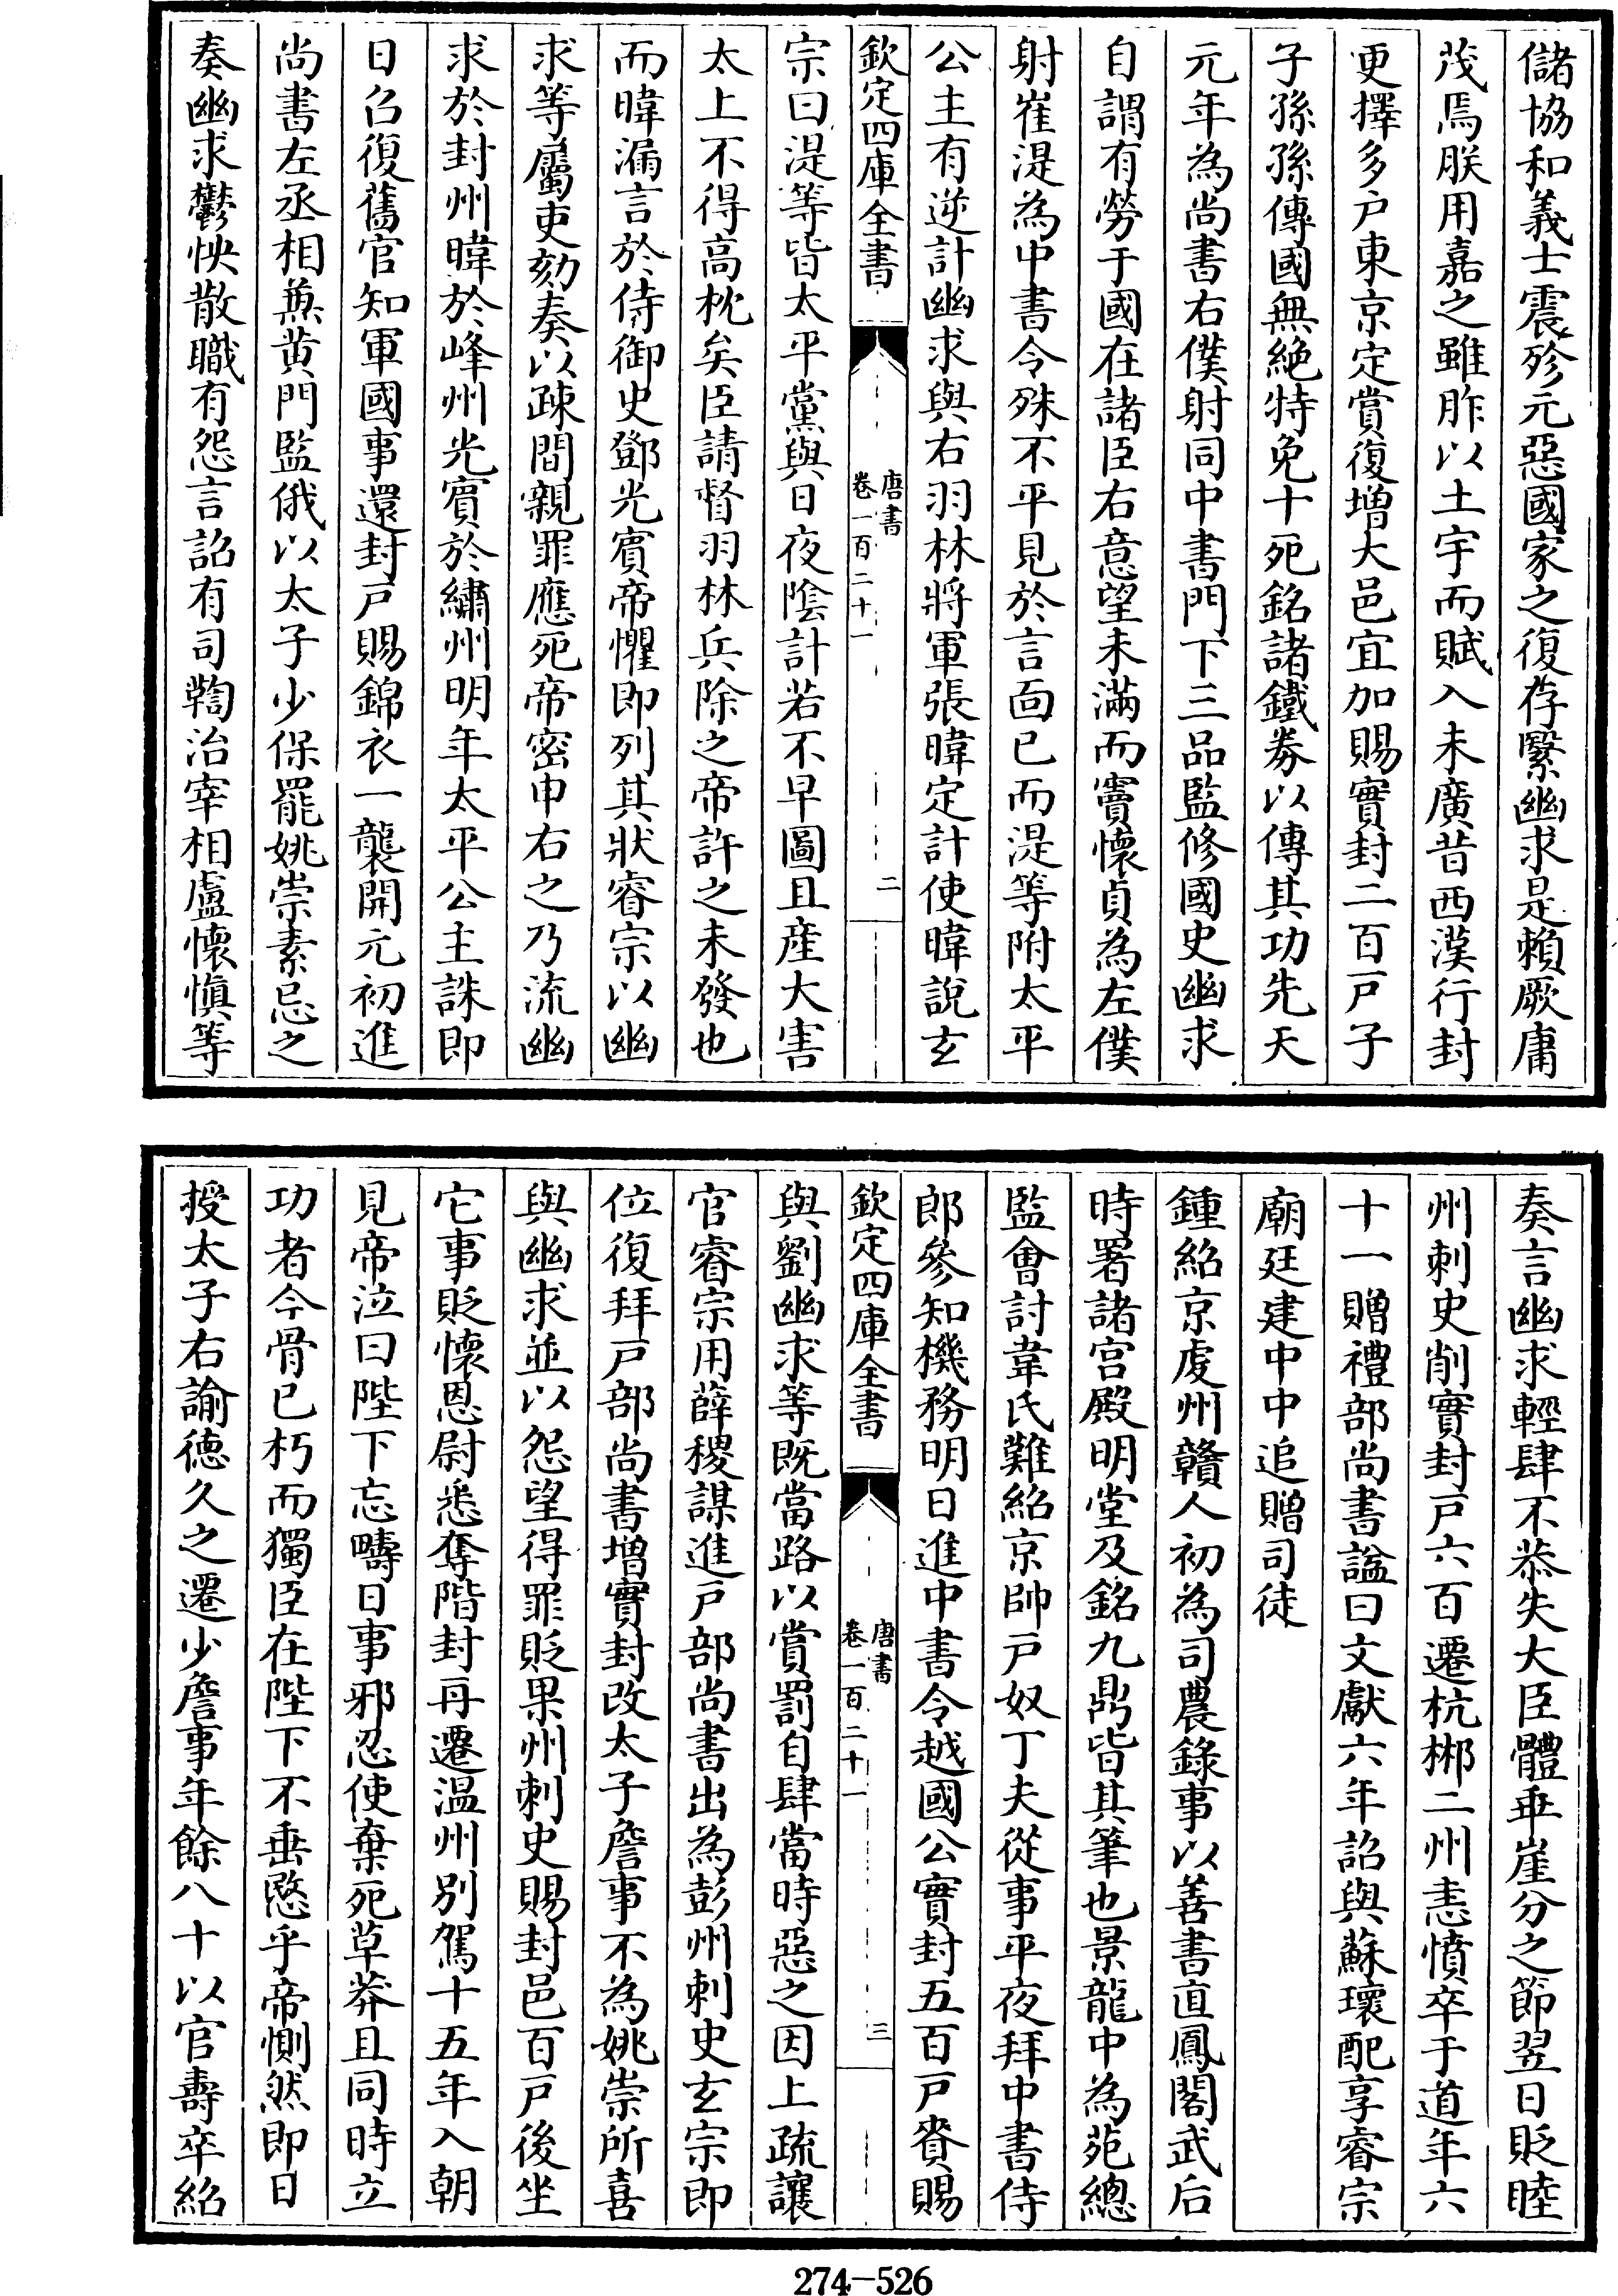 儲協和義士震殄元惡國家之復存緊幽求是賴厥庸
茂焉朕用嘉之雖胙以土宇而賦入未廣昔西漢行封
更擇多户東京定賞復增大邑宜加賜實封二百戸子
子孫孫傳國無絶特免十死銘諸鐵券以傳其功先天
元年為尚書右僕射同中書門下三品監修國史幽求
自謂有勞于國在諸臣右意望未滿而竇懷貞為左僕
射崔湜為中書令殊不平見於言面已而湜等附太平
公主有逆計幽求與右羽林將軍張暐定計使暐說玄
欽定四庫全書
唐書
卷一百二十一
二
宗曰湜等皆太平黨與日夜陰計若不早圖且産大害
太上不得高枕矣臣請督羽林兵除之帝許之未發也
而暐漏言於侍御史鄧光賓帝懼即列其狀睿宗以幽
求等屬吏劾奏以疎間親罪應死帝密申右之乃流幽
求於封州暐於峰州光賓於繡州明年太平公主誅即
日召復舊官知軍國事還封戸賜錦衣一襲開元初進
尚書左丞相兼黄門監俄以太子少保罷姚崇素忌之
奏幽求鬱怏散職有怨言詔有司鞫治宰相盧懷慎等
奏言幽求輕肆不恭失大臣體乖崖分之節翌日貶睦
州刺史削實封戸六百遷杭郴二州恚憤卒于道年六
十一贈禮部尚書諡曰文獻六年詔與蘇瓌配享睿宗
廟廷建中中追贈司徒
鍾紹京虔州贛人初為司農錄事以善書直鳳閣武后
時署諸宮殿明堂及銘九鼎皆其筆也景龍中為苑總
監會討韋氏難紹京帥戸奴丁夫從事平夜拜中書侍
郎參知機務明日進中書令越國公實封五百戸賚賜
欽定四庫全書
唐書
卷一百二十一
三
與劉幽求等既當路以賞罰自肆當時惡之因上疏讓
官睿宗用薛稷謀進戸部尚書出為彭州刺史玄宗即
位復拜戸部尚書增實封改太子詹事不為姚崇所喜
與幽求並以怨望得罪貶果州刺史賜封邑百戸後坐
它事貶懷恩尉悉奪階封再遷溫州別駕十五年入朝
見帝泣曰陛下忘疇日事邪忍使棄死草莽且同時立
功者今骨已朽而獨臣在陛下不垂愍乎帝惻然即日
授太子右諭德久之遷少詹事年餘八十以官壽卒紹
274-526